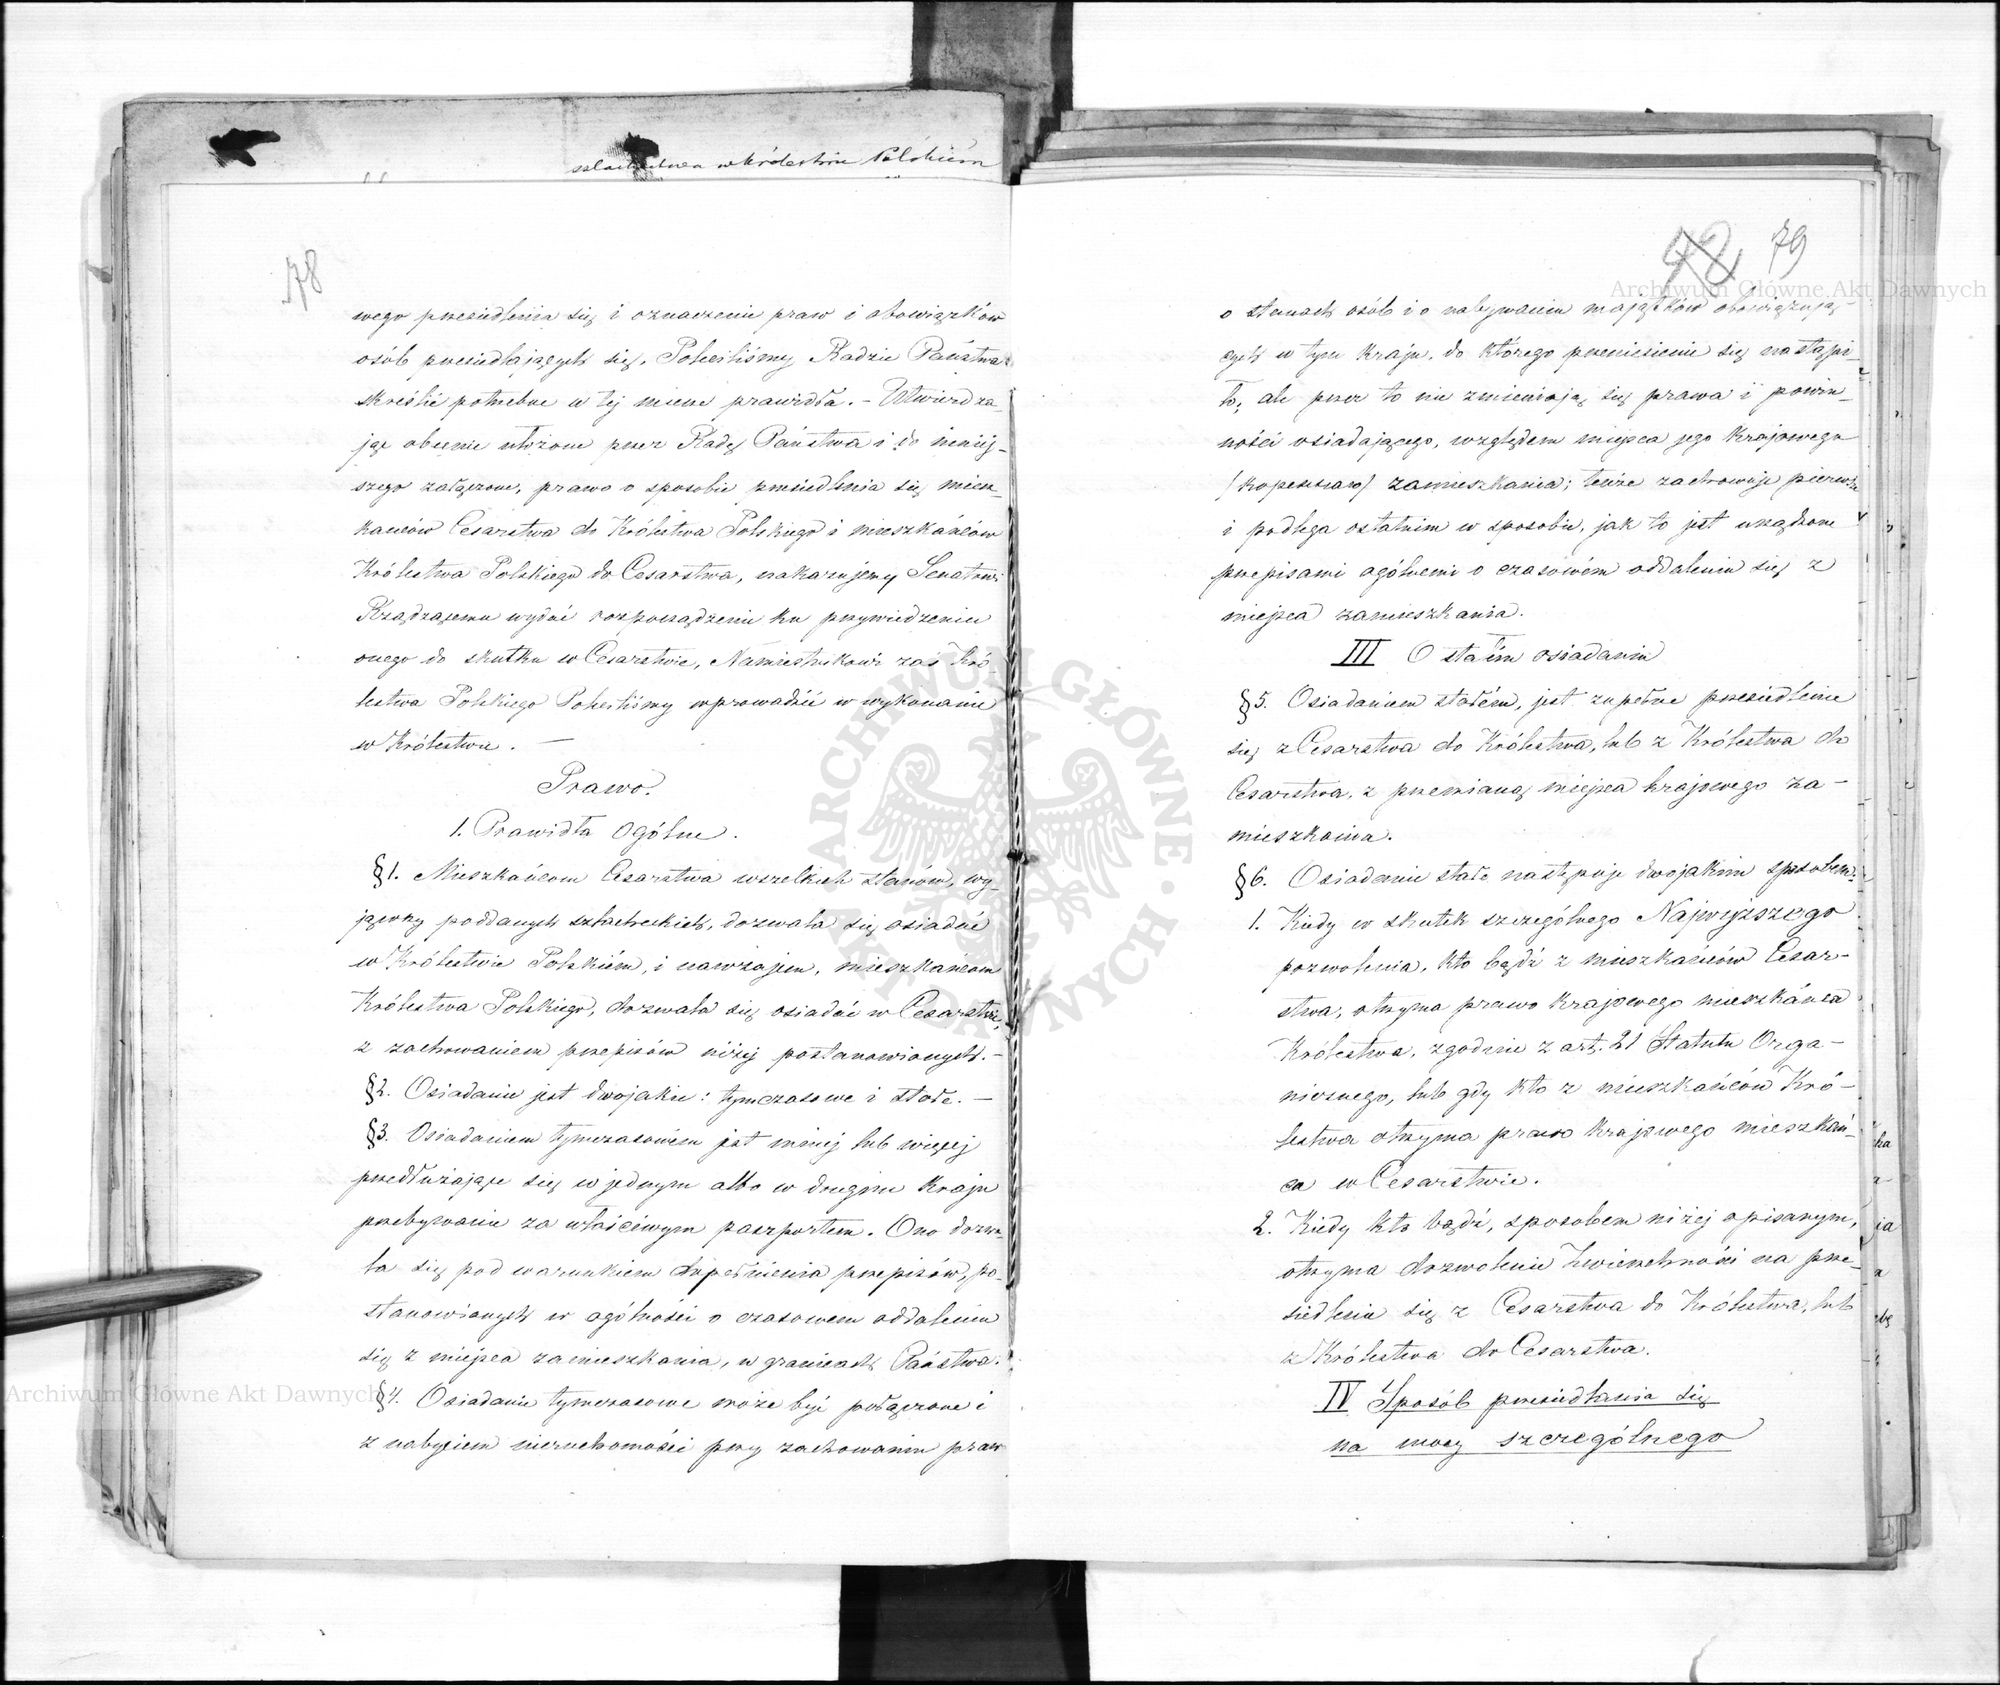 szlachectwa w Królestwie Polskiém
78
wego przesiedlenia się i oznaczenie praw i obowiązków
osób przesiedlających się, Poleciliśmy Radzie Państwa
skréślić potrzebne w tej mierze prawidła. – Utwierdza-
jąc obecnie ułożone przez Radę Państwa i do niniéj-
szego załączone, prawo o sposobie przesiedlenia się miesz-
kańców Cesarstwa do Królestwa Polskiego i mieszkańców
Królestwa Polskiego do Cesarstwa, nakazujemy Senatowi
Rządzącemu wydać rozporządzenie ku przywiedzeniu
onego do skutku w Cesarstwie, Namiestnikowi zaś Kró-
lestwa Polskiego Poleciliśmy wprowadzić w wykonanie
w Królestwie. —
Prawo.
1. Prawidła Ogólne.
§1. Mieszkańcom Cesarstwa wszelkich stanów, wy-
jąwszy poddanych szlacheckich, dozwala się osiadać
w Królestwie Polskiém, i nawzajem, mieszkańcom
Królestwa Polskiego, dozwala się osiadać w Cesarstwie,
z zachowaniem przepisów niżéj postanowionych. –
§2. Osiadanie jest dwojakie: tymczasowe i stałe. –
§3. Osiadaniem tymczasowém jest mniéj lub więcéj
przedłużające się w jednym albo w drugim kraju
przebywanie za właściwym paszportem. Ono dozwa-
la się pod warunkiem dopełnienia przepisów, po-
stanowionych w ogólności o czasowem oddaleniu
się z miejsca zamieszkania, w granicach Państwa.
§4. Osiadanie tymczasowe może być połączone i
z nabyciem nieruchomości przy zachowaniu praw
78 79
o stanach osób i o nabywaniu majątków obowiązują-
cych w tym kraju, do którego przeniesienie się nastąpi-
ło, ale przez to nie zmieniają się prawa i powin-
ności osiadającego, względem miejsca jego krajowego
zamieszkania; tenże zachowuje pierwsze
i podlega ostatnim w sposobie, jak to jest urządzone
przepisami ogólnemi o czasowém oddaleniu się z
miejsca zamieszkania.
III O stałém osiadaniu
§5. Osiadaniem stałém, jest zupełne przesiedlenie
się z Cesarstwa do Królestwa, lub z Królestwa do
Cesarstwa, z przemianą miejsca krajowego za-
mieszkania.
§6. Osiadanie stałe następuje dwojakim sposobem:
1. Kiedy w skutek szczególnego Najwyższego
pozwolenia, kto bądź z mieszkańców Cesar-
stwa, otrzyma prawo krajowego mieszkańca
Królestwa, zgodnie z art. 21 Statutu Orga-
nicznego, lub gdy kto z mieszkańców Kró-
lestwa otrzyma prawo krajowego mieszkań-
ca w Cesarstwie.
2. Kiedy kto bądź, sposobem niżéj opisanym,
otrzyma dozwolenie Zwierzchności na prze-
siedlenie się z Cesarstwa do Królestwa, lub
z Królestwa do Cesarstwa.
IV Sposób przesiedlania się
na mocy szczególnego
Archiwum Główne Akt Dawnych
Archiwum Główne Akt Dawnych
ARCHIWUM GŁÓWNE AKT DAWNYCH